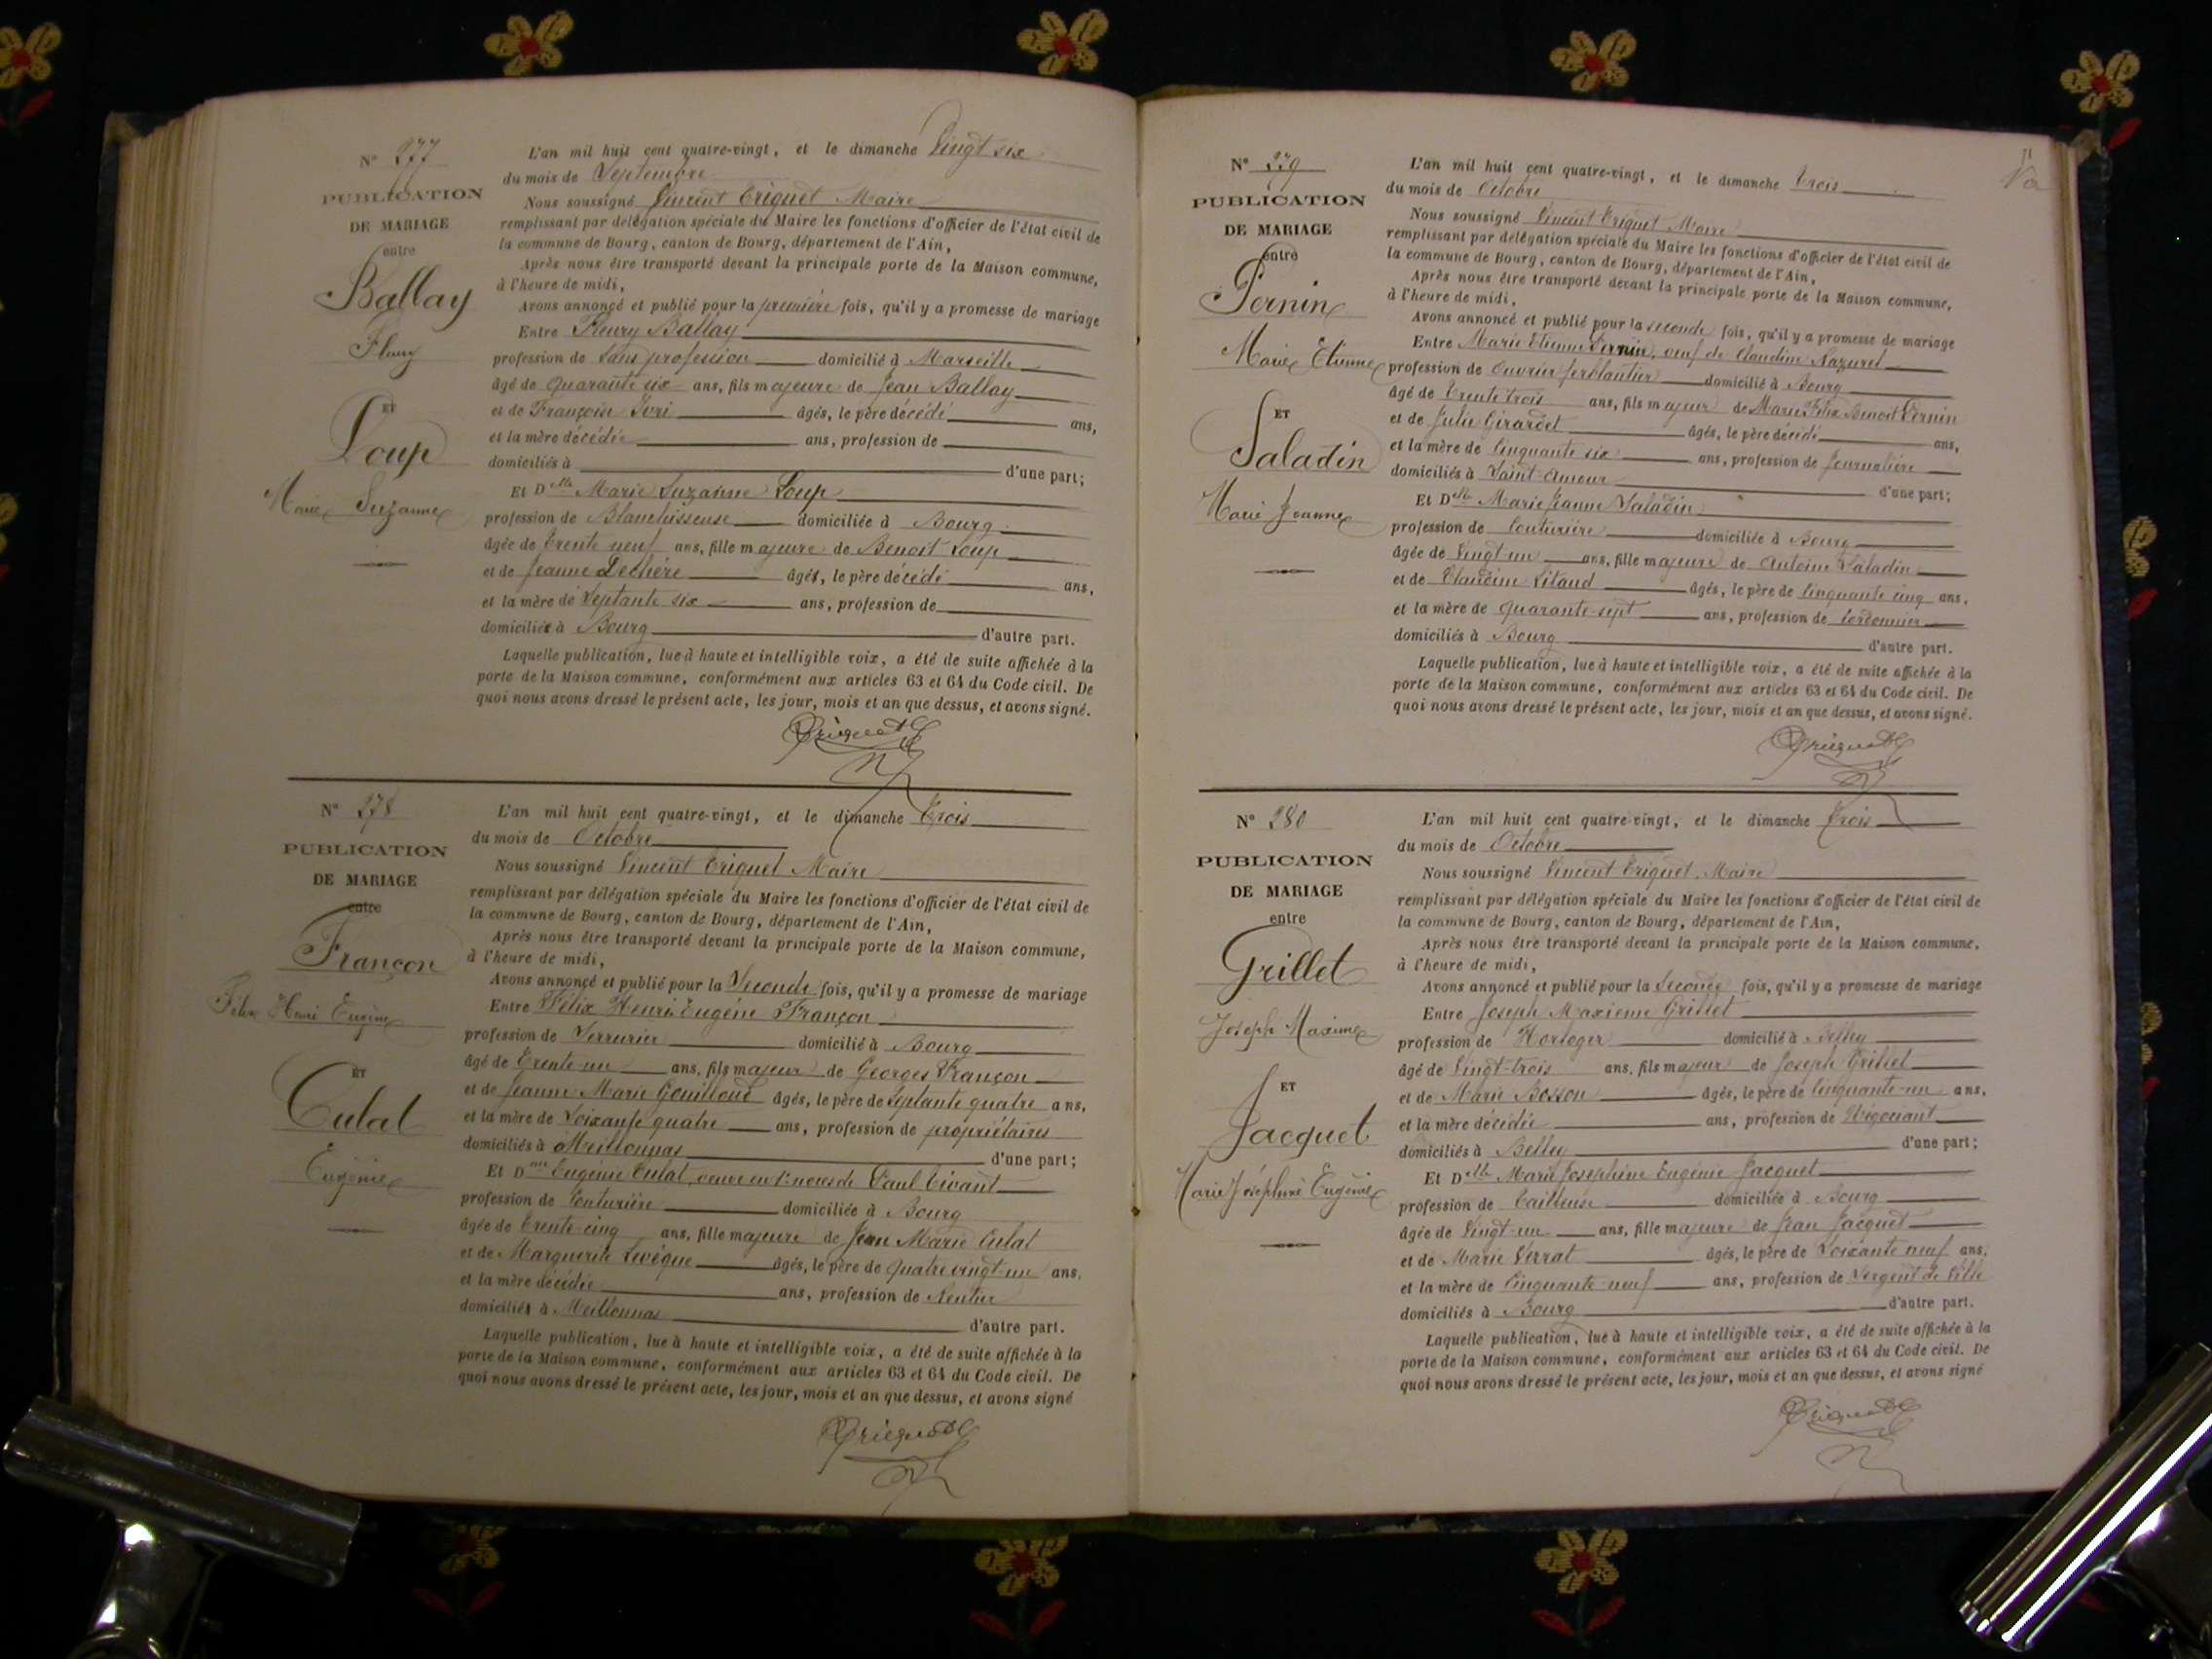 N° 277
PUBLICATION
DE MARIAGE
entre
Ballay
Fleury
ET
Loup
Marie Suzanne
L'an mil huit cent quatre-vingt, et le dimanche Vingt six
du mois de Septembre
Nous soussigné Vincent Triquet Maire
remplissant par délégation spéciale du Maire les fonctions d'officier de l'état civil de
la commune de Bourg, canton de Bourg, département de l'Ain,
Après nous être transporté devant la principale porte de la Maison commune,
à l'heure de midi,
Avons annoncé et publié pour la première fois, qu'il y a promesse de mariage
Entre Fleury Ballay
profession de Sans profession domicilié à Marseille
âgé de quarante six ans, fils majeure de Jean Ballay
et de Françoise âgés, le père décédé ans,
et la mère décédée ans, profession de
domiciliés à d'une part;
Et Delle Marie Suzanne Loup
profession de Blanchisseuse domiciliée à Bourg
âgée de trente neuf ans, fille majeure de Benoit Loup
et de Jeanne Dechère âgés, le père décédé ans,
et la mère de Septante six ans, profession de
domiciliée à Bourg d'autre part.
Laquelle publication, lue à haute et intelligible voix, a été de suite affichée à la
porte de la Maison commune, conformément aux articles 63 et 64 du Code civil. De
quoi nous avons dressé le présent acte, les jour, mois et an que dessus, et avons signé.
Triquet
N° 278
PUBLICATION
DE MARIAGE
entre
Françon
Félix Henri Eugène
ET
Culat
Eugénie
L'an mil huit cent quatre-vingt, et le dimanche Trois
du mois de Octobre
Nous soussigné Vincent Triquet Maire
remplissant par délégation spéciale du Maire les fonctions d'officier de l'état civil de
la commune de Bourg, canton de Bourg, département de l'Ain,
Après nous être transporté devant la principale porte de la Maison commune,
à l'heure de midi,
Avons annoncé et publié pour la Seconde fois, qu'il y a promesse de mariage
Entre Félix Henri Eugène Françon
profession de Serrurier domicilié à Bourg
âgé de Trente-un ans, fils majeur de Georges Françon
et de Jeanne Marie Gouilloud âgés, le père de Septante quatre ans,
et la mère de Soixante quatre ans, profession de propriétaires
domiciliés à Meillonnas d'une part;
Et Dme Eugénie Culat, veuve en 1res noces de Paul Tivant
profession de Couturière domiciliée à Bourg
âgée de trente-cinq ans, fille majeure de Jean Marie Culat
et de Marguerite Levêque âgés, le père de quatre vingt-un ans,
et la mère décédée ans, profession de Rentier
domiciliés à Meillonnas d'autre part.
Laquelle publication, lue à haute et intelligible voix, a été de suite affichée à la
porte de la Maison commune, conformément aux articles 63 et 64 du Code civil. De
quoi nous avons dressé le présent acte, les jour, mois et an que dessus, et avons signé
Triquet
N° 279
PUBLICATION
DE MARIAGE
entre
Pernin
Marie Etienne
ET
Saladin
Marie Jeanne
L'an mil huit cent quatre-vingt, et le dimanche Trois
du mois de Octobre
Nous soussigné Vincent Triquet Maire
remplissant par délégation spéciale du Maire les fonctions d'officier de l'état civil de
la commune de Bourg, canton de Bourg, département de l'Ain,
Après nous être transporté devant la principale porte de la Maison commune,
à l'heure de midi,
Avons annoncé et publié pour la seconde fois, qu'il y a promesse de mariage
Entre Marie Etienne Pernin, veuf de Claudine Nazaret
profession de Ouvrier ferblantier domicilié à Bourg
âgé de Trente trois ans, fils majeur de Marie Félix Benoit Pernin
et de Julie Girardet âgés, le père décédé ans,
et la mère de Cinquante six ans, profession de Journalière
domiciliés à Saint-Amour d'une part;
Et Delle Marie Jeanne Saladin
profession de Couturière domiciliée à Bourg
âgée de Vingt-un ans, fille majeure de Antoine Saladin
et de Claudine Litaud âgés, le père de Cinquante cinq ans,
et la mère de quarante-sept ans, profession de Cordonnier
domiciliés à Bourg d'autre part.
Laquelle publication, lue à haute et intelligible voix, a été de suite affichée à la
porte de la Maison commune, conformément aux articles 63 et 64 du Code civil. De
quoi nous avons dressé le présent acte, les jour, mois et an que dessus, et avons signé.
Triquet
N° 280
PUBLICATION
DE MARIAGE
entre
Grillet
Joseph Maxime
ET
Jacquet
Marie Joséphine Eugénie
L'an mil huit cent quatre-vingt, et le dimanche Trois
du mois de Octobre
Nous soussigné Vincent Triquet Maire
remplissant par délégation spéciale du Maire les fonctions d'officier de l'état civil de
la commune de Bourg, canton de Bourg, département de l'Ain,
Après nous être transporté devant la principale porte de la Maison commune,
à l'heure de midi,
Avons annoncé et publié pour la Seconde fois, qu'il y a promesse de mariage
Entre Joseph Maxieme Grillet
profession de Horloger domicilié à Belley
âgé de Vingt-trois ans, fils majeur de Joseph Grillet
et de Marie Bosson âgés, le père de Cinquante-un ans,
et la mère décédée ans, profession de Négociant
domiciliés à Belley d'une part;
Et Delle Marie Joséphine Eugénie Jacquet
profession de Tailleuse domiciliée à Bourg
âgée de Vingt-un ans, fille majeure de Jean Jacquet
et de Marie Verrat âgés, le père de Soixante neuf ans,
et la mère de Cinquante-neuf ans, profession de Sergent de Ville
domiciliés à Bourg d'autre part.
Laquelle publication, lue à haute et intelligible voix, a été de suite affichée à la
porte de la Maison commune, conformément aux articles 63 et 64 du Code civil. De
quoi nous avons dressé le présent acte, les jour, mois et an que dessus, et avons signé
Triquet